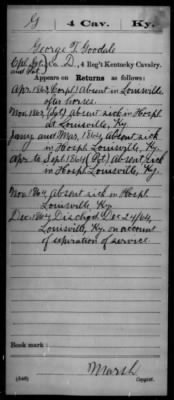 G | 4 Cav. | Ky.
George T. Goodale
Cpl, Sgt, Co. D, 4 Reg't Kentucky Cavalry.
and Pvt.
Appears on Returns as follows:
Apr. 1863 (Corpl) Absent in Louisville,
after horses.
Nov. 1863 (Sgt) Absent sick in Hospt
at Louisville, Ky.
Jany. and Mar, 1864, Absent sick
in Hospl. Louisville, Ky.
Apr. to Sept. 1864 (Pvt) Absent sick
in Hospt. Louisville, Ky.
Nov. 1864 Absent sick in Hospl.
Louisville, Ky.
Dec. 1864 Dischgd Dec. 24/64,
Louisville, Ky. on account
of expiration of service
Book mark:
Marsh
(546) Copyist.